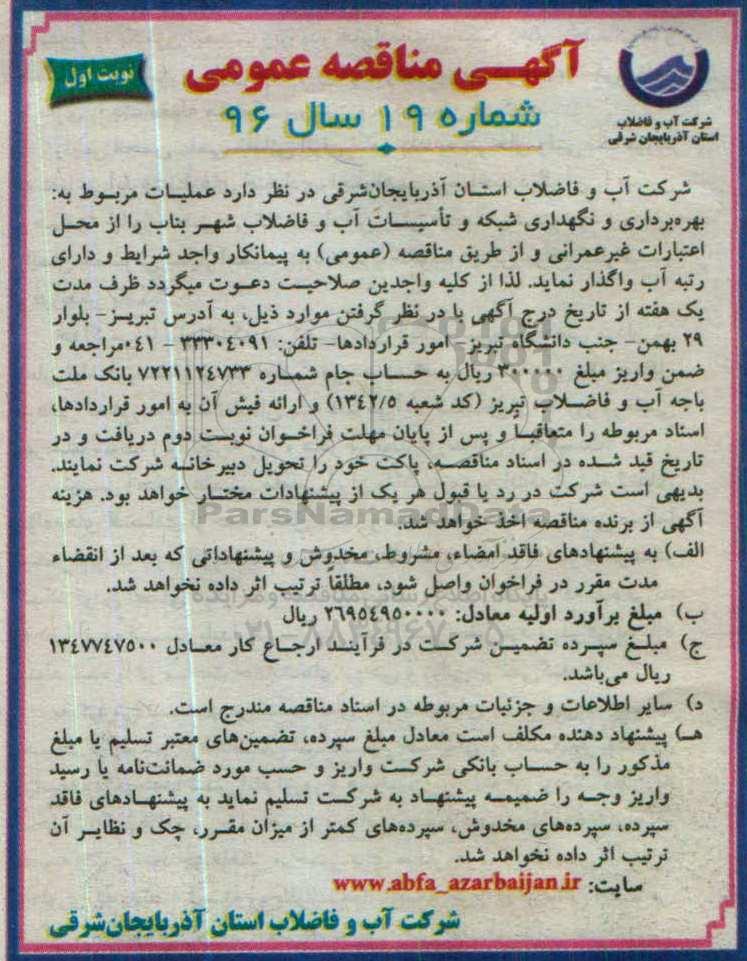 آگهی مناقصه عمومی
شماره ۱۹ سال ۹۶
نوبت اول
شرکت آب و فاضلاب
استان آذربایجان شرقی
شرکت آب و فاضلاب استان آذربایجان‌شرقی در نظر دارد عملیات مربوط به:
بهره‌برداری و نگهداری شبکه و تأسیسات آب و فاضلاب شهر بناب را از محل
اعتبارات غیرعمرانی و از طریق مناقصه (عمومی) به پیمانکار واجد شرایط و دارای
رتبه آب واگذار نماید. لذا از کلیه واجدین صلاحیت دعوت میگردد ظرف مدت
یک هفته از تاریخ درج آگهی با در نظر گرفتن موارد ذیل، به آدرس تبریز- بلوار
۲۹ بهمن- جنب دانشگاه تبریز- امور قراردادها- تلفن: ۳۳۳۰۴۰۹۱ - ۰۴۱مراجعه و
ضمن واریز مبلغ ۳۰۰۰۰۰ ریال به حساب جام شماره ۷۲۲۱۱۲۴۷۳۳ بانک ملت
باجه آب و فاضلاب تبریز (کد شعبه ۱۳۴۲/۵) و ارائه فیش آن به امور قراردادها،
اسناد مربوطه را متعاقباً و پس از پایان مهلت فراخوان نوبت دوم دریافت و در
تاریخ قید شده در اسناد مناقصه، پاکت خود را تحویل دبیرخانه شرکت نمایند.
بدیهی است شرکت در رد یا قبول هر یک از پیشنهادات مختار خواهد بود. هزینه
آگهی از برنده مناقصه اخذ خواهد شد.
ParsNamadData
الف) به پیشنهادهای فاقد امضاء، مشروط، مخدوش و پیشنهاداتی که بعد از انقضاء
مدت مقرر در فراخوان واصل شود، مطلقاً ترتیب اثر داده نخواهد شد.
ب) مبلغ برآورد اولیه معادل: ۲۶۹۵۴۹۵۰۰۰۰ ریال
ج) مبلغ سپرده تضمین شرکت در فرآیند ارجاع کار معادل ۱۳۴۷۷۴۷۵۰۰
ریال می‌باشد.
د) سایر اطلاعات و جزئیات مربوطه در اسناد مناقصه مندرج است.
هـ) پیشنهاد دهنده مکلف است معادل مبلغ سپرده، تضمین‌های معتبر تسلیم یا مبلغ
مذکور را به حساب بانکی شرکت واریز و حسب مورد ضمانت‌نامه یا رسید
واریز وجه را ضمیمه پیشنهاد به شرکت تسلیم نماید به پیشنهادهای فاقد
سپرده، سپرده‌های مخدوش، سپرده‌های کمتر از میزان مقرر، چک و نظایر آن
ترتیب اثر داده نخواهد شد.
سایت: www.abfa_azarbaijan.ir
شرکت آب و فاضلاب استان آذربایجان‌شرقی